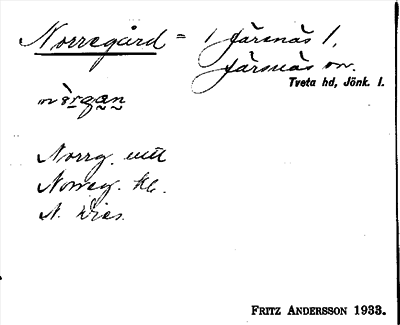 Norregård = 1 Järsnäs 1,
Järsnäs sn.
Tveta hd, Jönk. l.
Norrg. utt
Norreg. Kb.
N. Dies.
FRITZ ANDERSSON 1933.